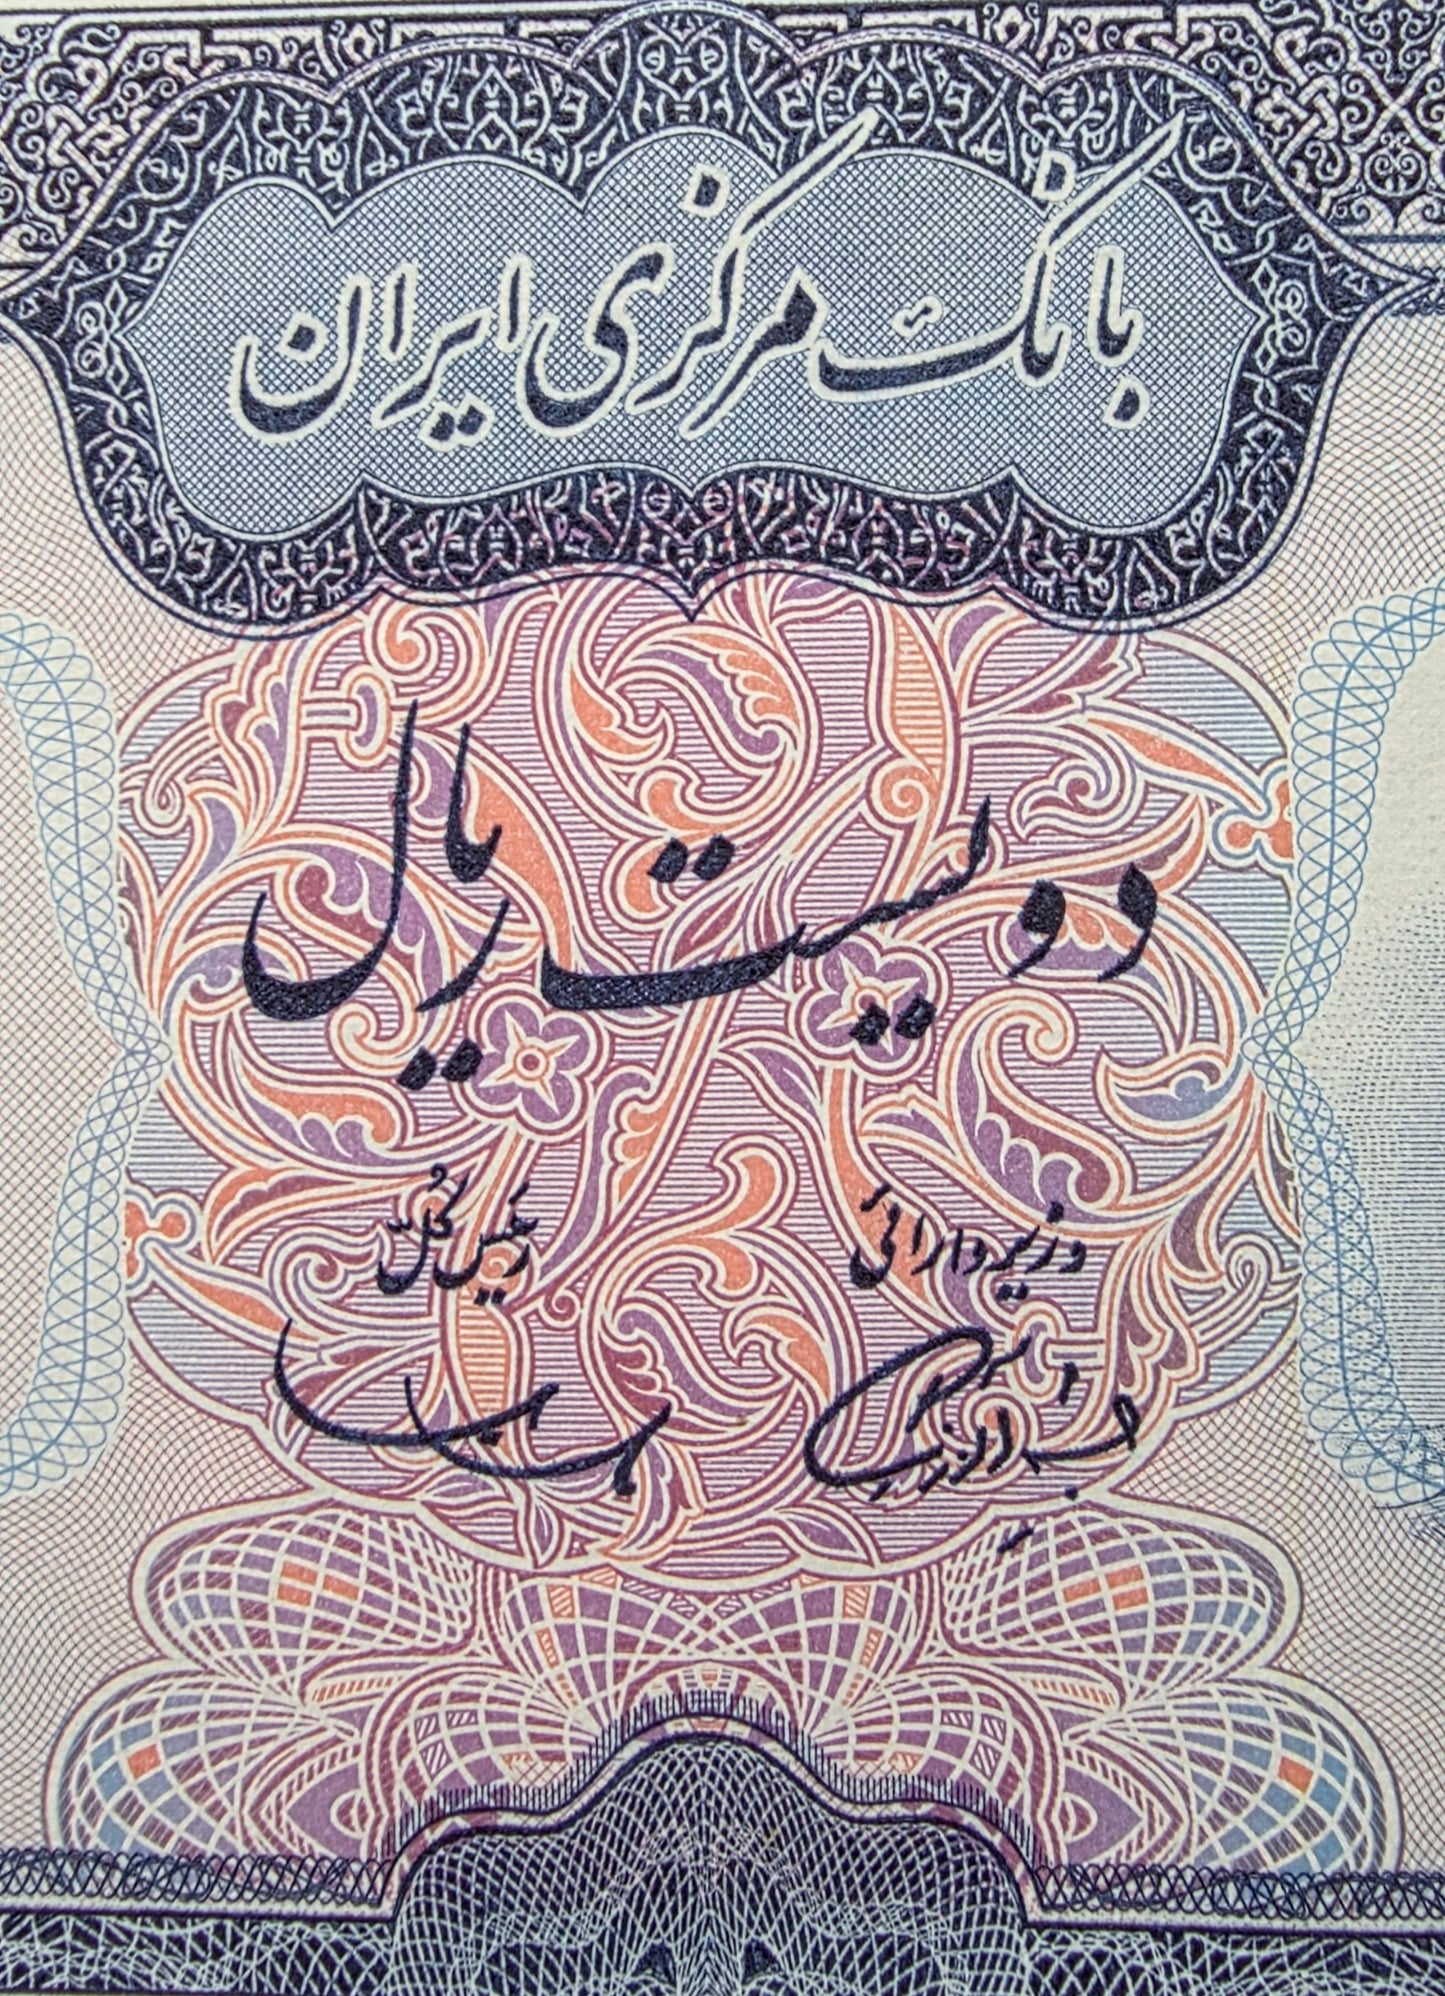 بانک مرکزی ایران
دویست ریال
وزیر دارائی رئیس کل